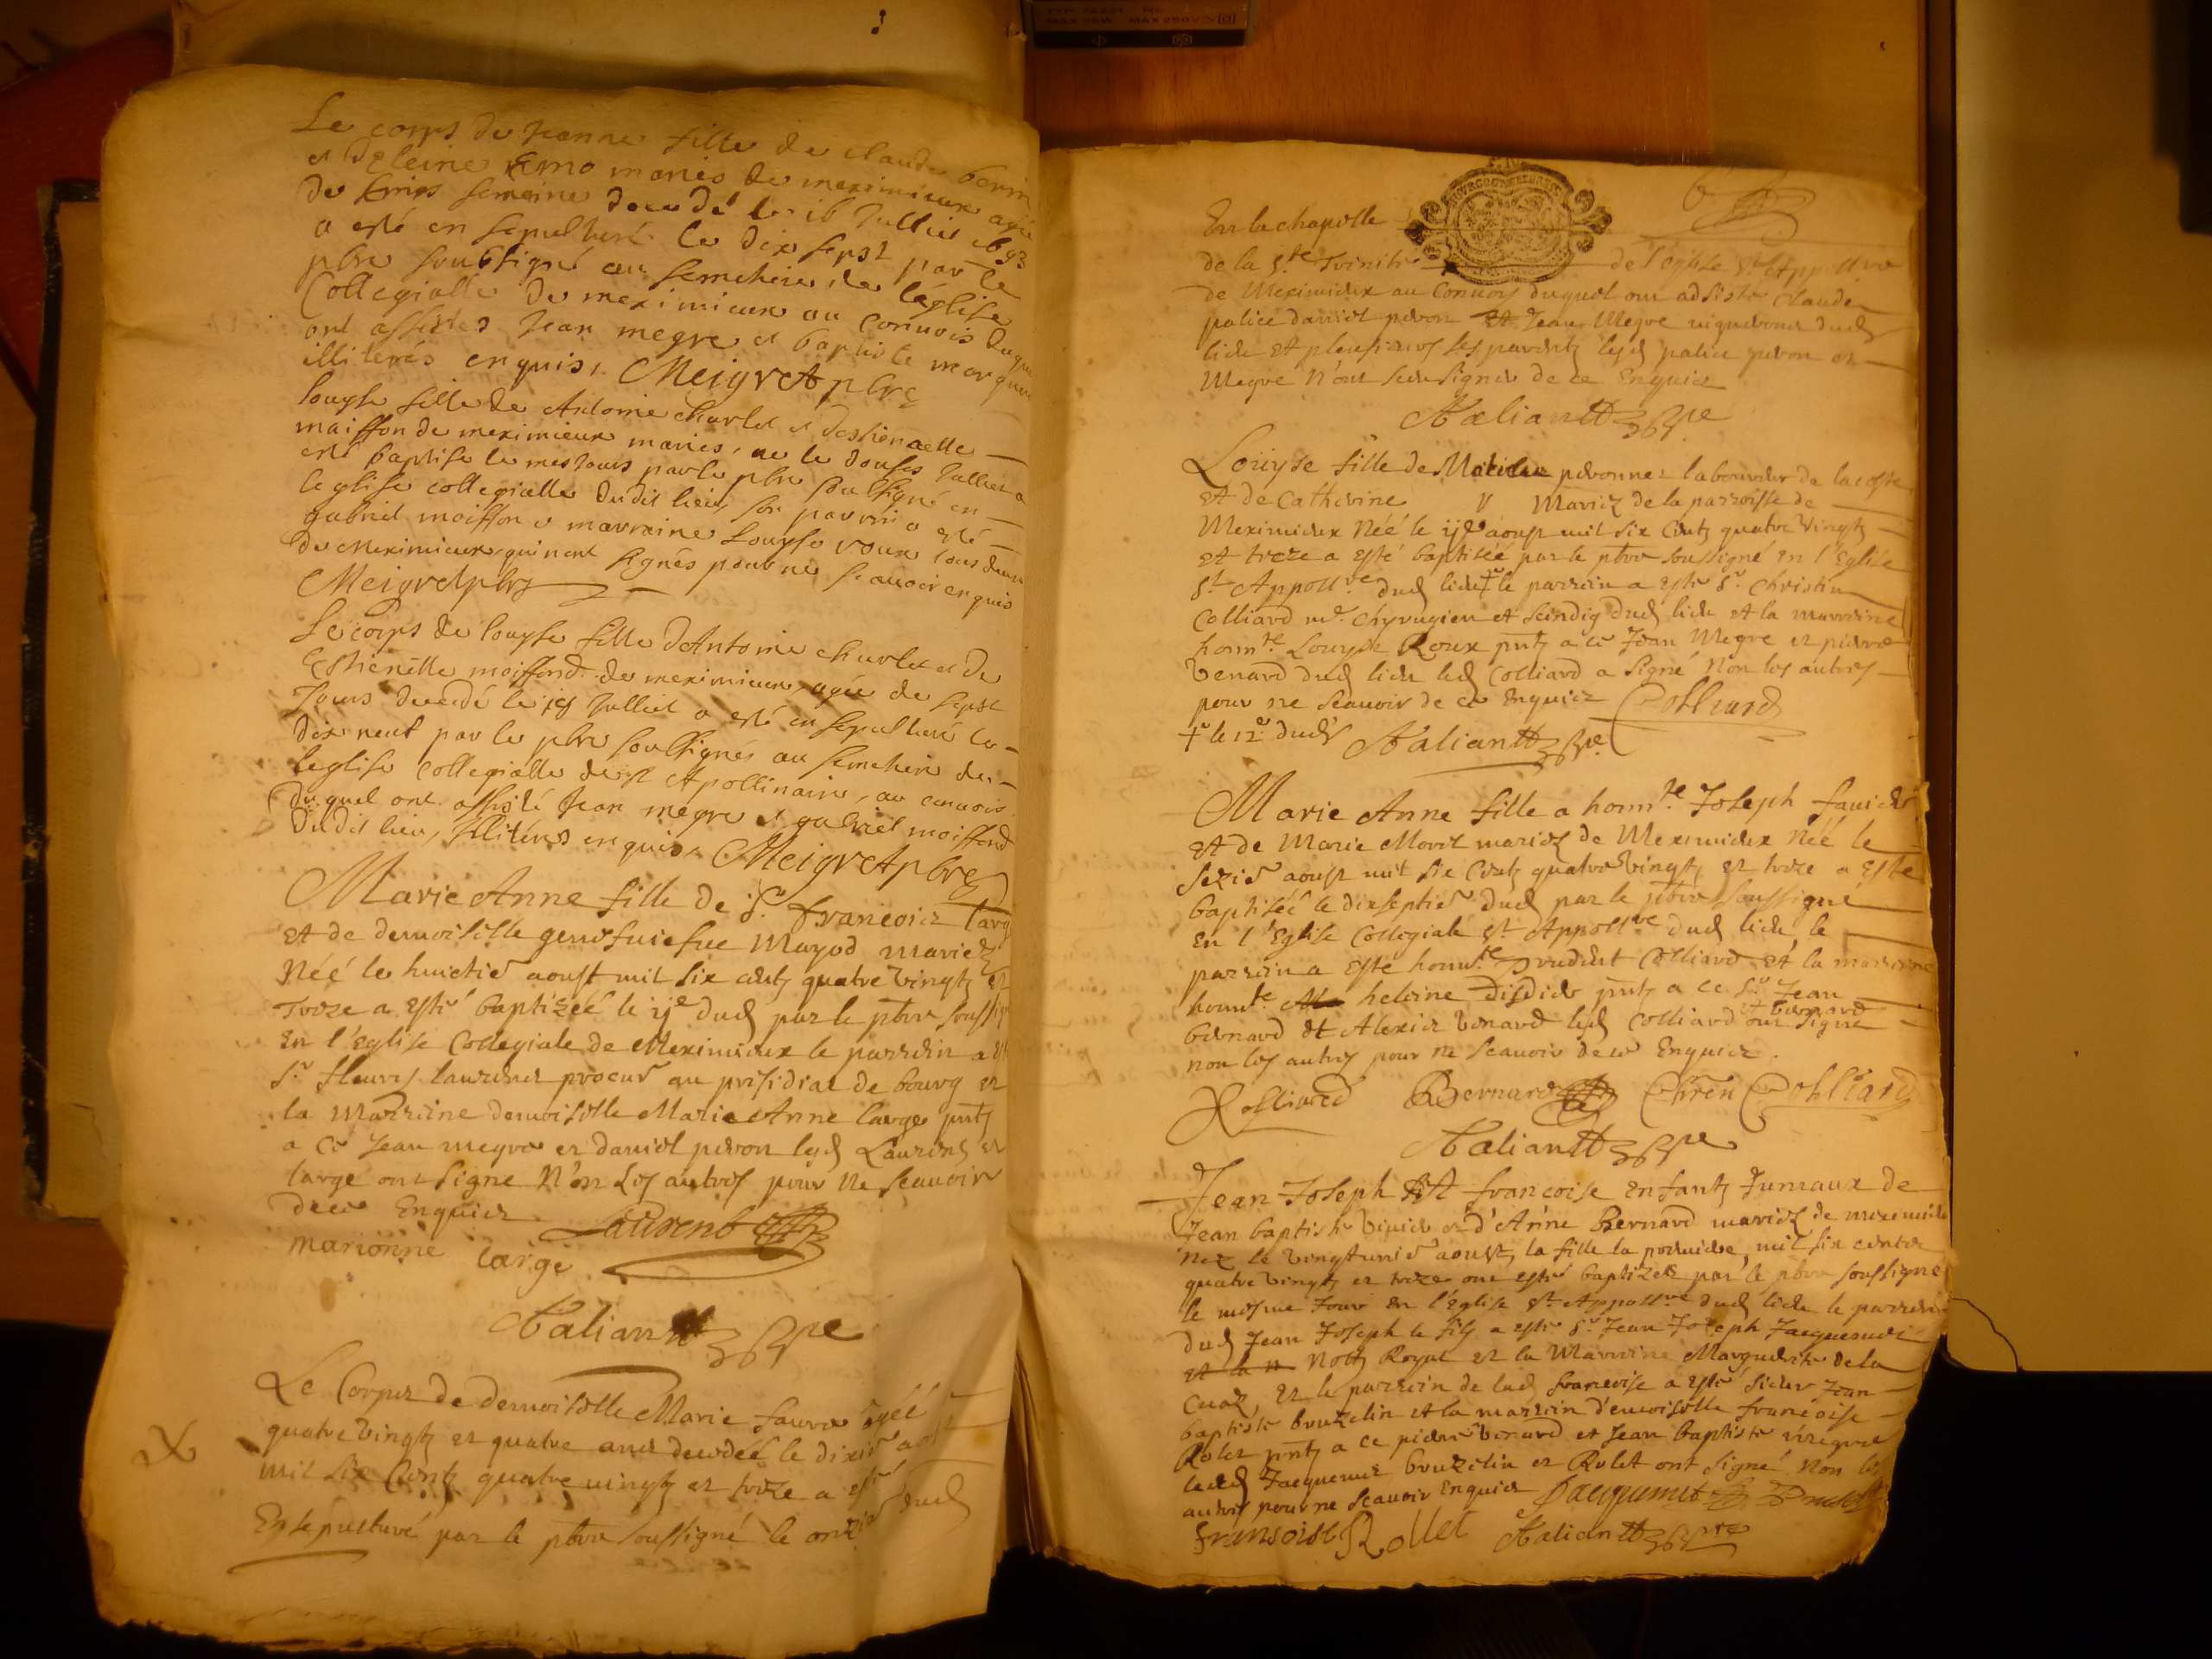 Le corps de Jeanne fille de claude
et maries de meximieux agée
de semeine decedé le 16 Julliet 1693
a esté en sepulturé le dix sept par le
pbre soubsigné au semetiere de l'eglise
Collegialle de meximieux au convois duquel
ont assistes Jean megre et baptiste
illiterés enquis. Meigret pbre
Louyse fille de Antoine charlet et destienette
moisson de meximieux maries, ne le douses Julliet a
esté baptisé le mes Jours par le pbre soubsigné en
l'eglise collegialle dudit lieu son parrin a esté
gabriel moisson et marraine Louyse roux tous deux
de Meximieux qui n'ont signés pour ne scavoir enquis
Meigret pbre
Le corps de louyse fille d'Antoine charlet et de
Esthienette moissond de meximieux, agée de sept
Jours decedé le Julliet a esté en sepulturé le
dix neuf par le pbre soussignés au semetiere de
l'eglise collegialle de st Apollinaire, au convois
duquel ont assisté Jean megre et gabriel moissond
dudit lieu, illiterés enquis. Meigret pbre
Marie Anne fille de Sr. francois Larg
Et de demoiselle Mayod mariez
Néé le huictie aoust mil six centz quatre vingtz et
treze a esté baptizéé le ije dud par le pbre soussig
En l'Eglise Collegiale de Meximieux le parrein a est
Sr fleury laurenet procur au presidial de bourg et
la Marreine demoiselle Marie Anne large pntz
a ce Jean megre et daniel peron lesd Laurens et
large ont signe N'on les autres pour ne scauoir
dece Enquies Laurens
marionne large
Aaliantt
Le Corps de demoiselle Marie faure agéé
quatre vingtz et quatre ans decedéé le dixie aoust
mil six Centz quatre vingtz et treze a esté
Ensépulturé par le pbre soussigné le onzie dud
En la chapelle
de la Ste Trinite de l'eglise St Appollre
de Meximieux au Convoy duquel ont adsiste Claude
palice daniel peron Et Jean Megre vigneronz dud
lieu Et plusieurs ses parentz lesd palice peron et
Megre N'ont sceu signer de ce Enquiez
Aaliantt
Louyse fille de peronnet laboureur de la coste
Et de Catherine Mariez de la parroisse de
Meximieux Néé le ije aoust mil six Centz quatre Vingtz
Et treze a esté baptiséé par le pbre soussigné en l'Eglise
St Appollre dud lieu le parrein a este Sr Christin
Colliard me Chyrugien et scindig dud lieu et la marreine
honnte Louyse Roux pntz a ce Jean Megre et pierre
benard dud lieu led Colliard a signé Non les autres
pour ne scauoir de ce Enquiez Colliard
le 12e dud Aaliantt
Marie Anne fille a honnte Joseph fauier
Et de Marie Morel mariez de Meximieux Néé le
sezie aoust mil six Centz quatre vingtz et treze a esté
baptiséé le dixseptie dud par le pbre soussigné
En l'Eglise Collegiale St Appollre dud lieu, le
parrein a esté honnte prudent Colliard et la marreine
honnte heleine didier pntz a ce Sr Jean
bernard et Alexis benard lesd Colliard et bernard ont signe
non les autres pour ne scauoir dece Enquiez.
Colliard Bernard Chren Colliard
Aaliantt
Jean Joseph Et francoise enfantz Jumaux de
Jean baptiste et d'Anne Bernard mariez de meximieux
nez le vingtunie aoust, la fille la premiere, mil six centz
quatre vingtz et treze ont esté baptizez par le pbre soussigné
le mesme Jour en l'Eglise St Appollre dud lieu le parrein
dud Jean Joseph le filz a este Sr Jean Joseph Jacquemet
et la Nottre Royal et la Marreine Marguerite dela
Cuaz, et le parrein de lad francoise a esté sieur Jean
baptiste bruzelin et la marrein d'emoiselle francoise
Rolet pntz a ce pierre benard et Jean baptiste
lesd Jacquemet bruzelin et Rolet ont signé Non les
autres pour ne scauoir Enquiez Jacquemet
fransoise Rollet Aaliantt